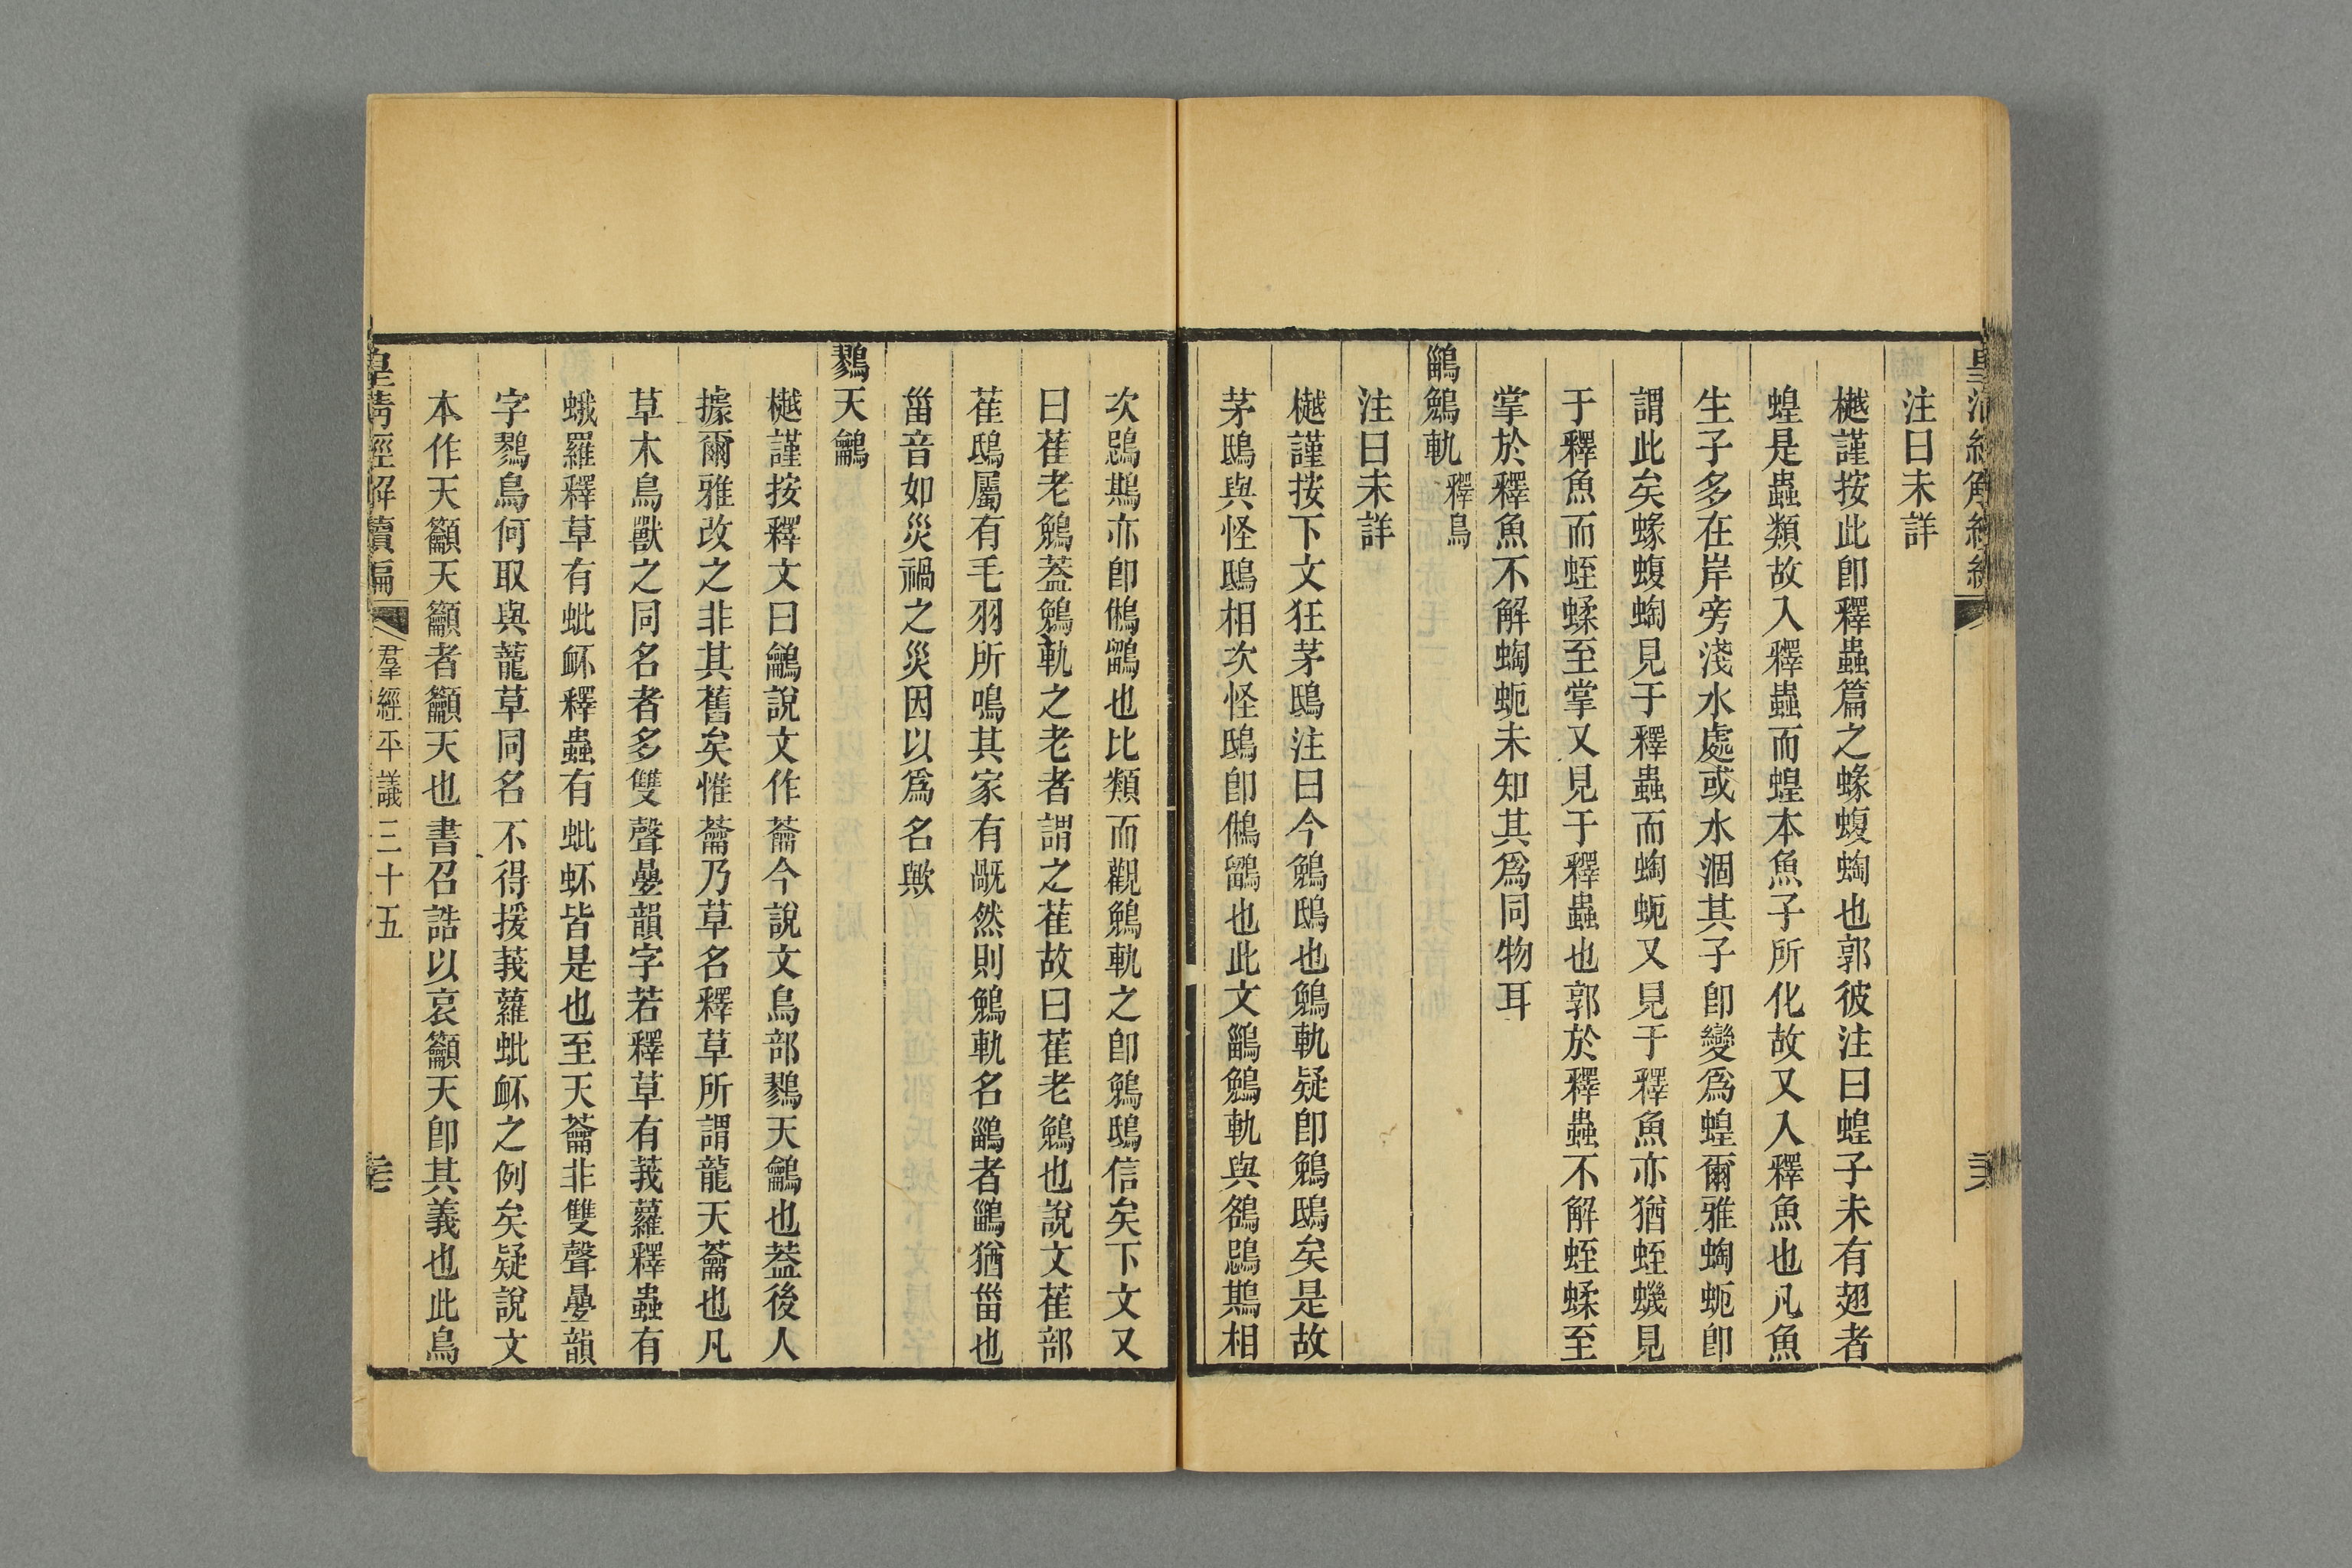 注曰未詳
樾謹按此卽釋蟲篇之蝝蝮蜪也郭彼注曰蝗子未有翅者
蝗是蟲類故入釋蟲而蝗本魚子所化故又入釋魚也凡魚
生子多在岸旁淺水處或水涸其子卽變爲蝗爾雅蜪蚅卽
謂此矣蝝蝮蜪見于釋蟲而蜪蚅又見于釋魚亦猶蛭蟣見
于釋魚而蛭蝚至掌又見于釋蟲也郭於釋蟲不解蛭蝚至
掌於釋魚不解蜪蚅未知其爲同物耳
鶅鵵軌 釋鳥
注曰未詳
樾謹按下文狂茅鴟注曰今鵵鴟也鵵軌疑卽鵵鴟矣是故
茅鴟與怪鴟相次怪鴟卽鵂鶹也此文鶅鵵軌與鵅鶪鶀相
次鶪鶀亦卽鵂鶹也比類而觀鵵軌之卽鵵鴟信矣下文又
曰萑老鵵蓋鵵軌之老者謂之萑故曰萑老鵵也說文萑部
萑鴟屬有毛羽所鳴其家有旤然則鵵軌名鶅者鶅猶甾也
甾音如災禍之災因以爲名歟
鷚天鸙
樾謹按釋文曰鸙說文作蘥今說文鳥部鷚天鸙也葢後人
據爾雅改之非其舊矣惟蘥乃草名釋草所謂蘢天蘥也凡
草木鳥獸之同名者多雙聲㬪韻字若釋草有莪蘿釋蟲有
蛾羅釋草有蚍衃釋蟲有蚍蚽皆是也至天蘥非雙聲㬪韻
字鷚鳥何取與蘢草同名不得援莪蘿蚍衃之例矣疑說文
本作天籲天籲者籲天也書召誥以哀籲天卽其義也此鳥
皇清經解續編 羣經平議三十五